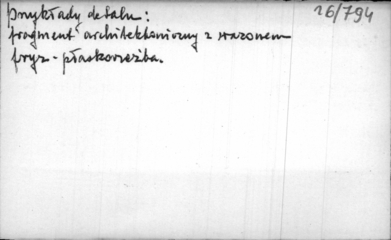 przykłady detalu:
26/794
fragment architektoniczny z wazonem
fryz - płaskorzeźba.